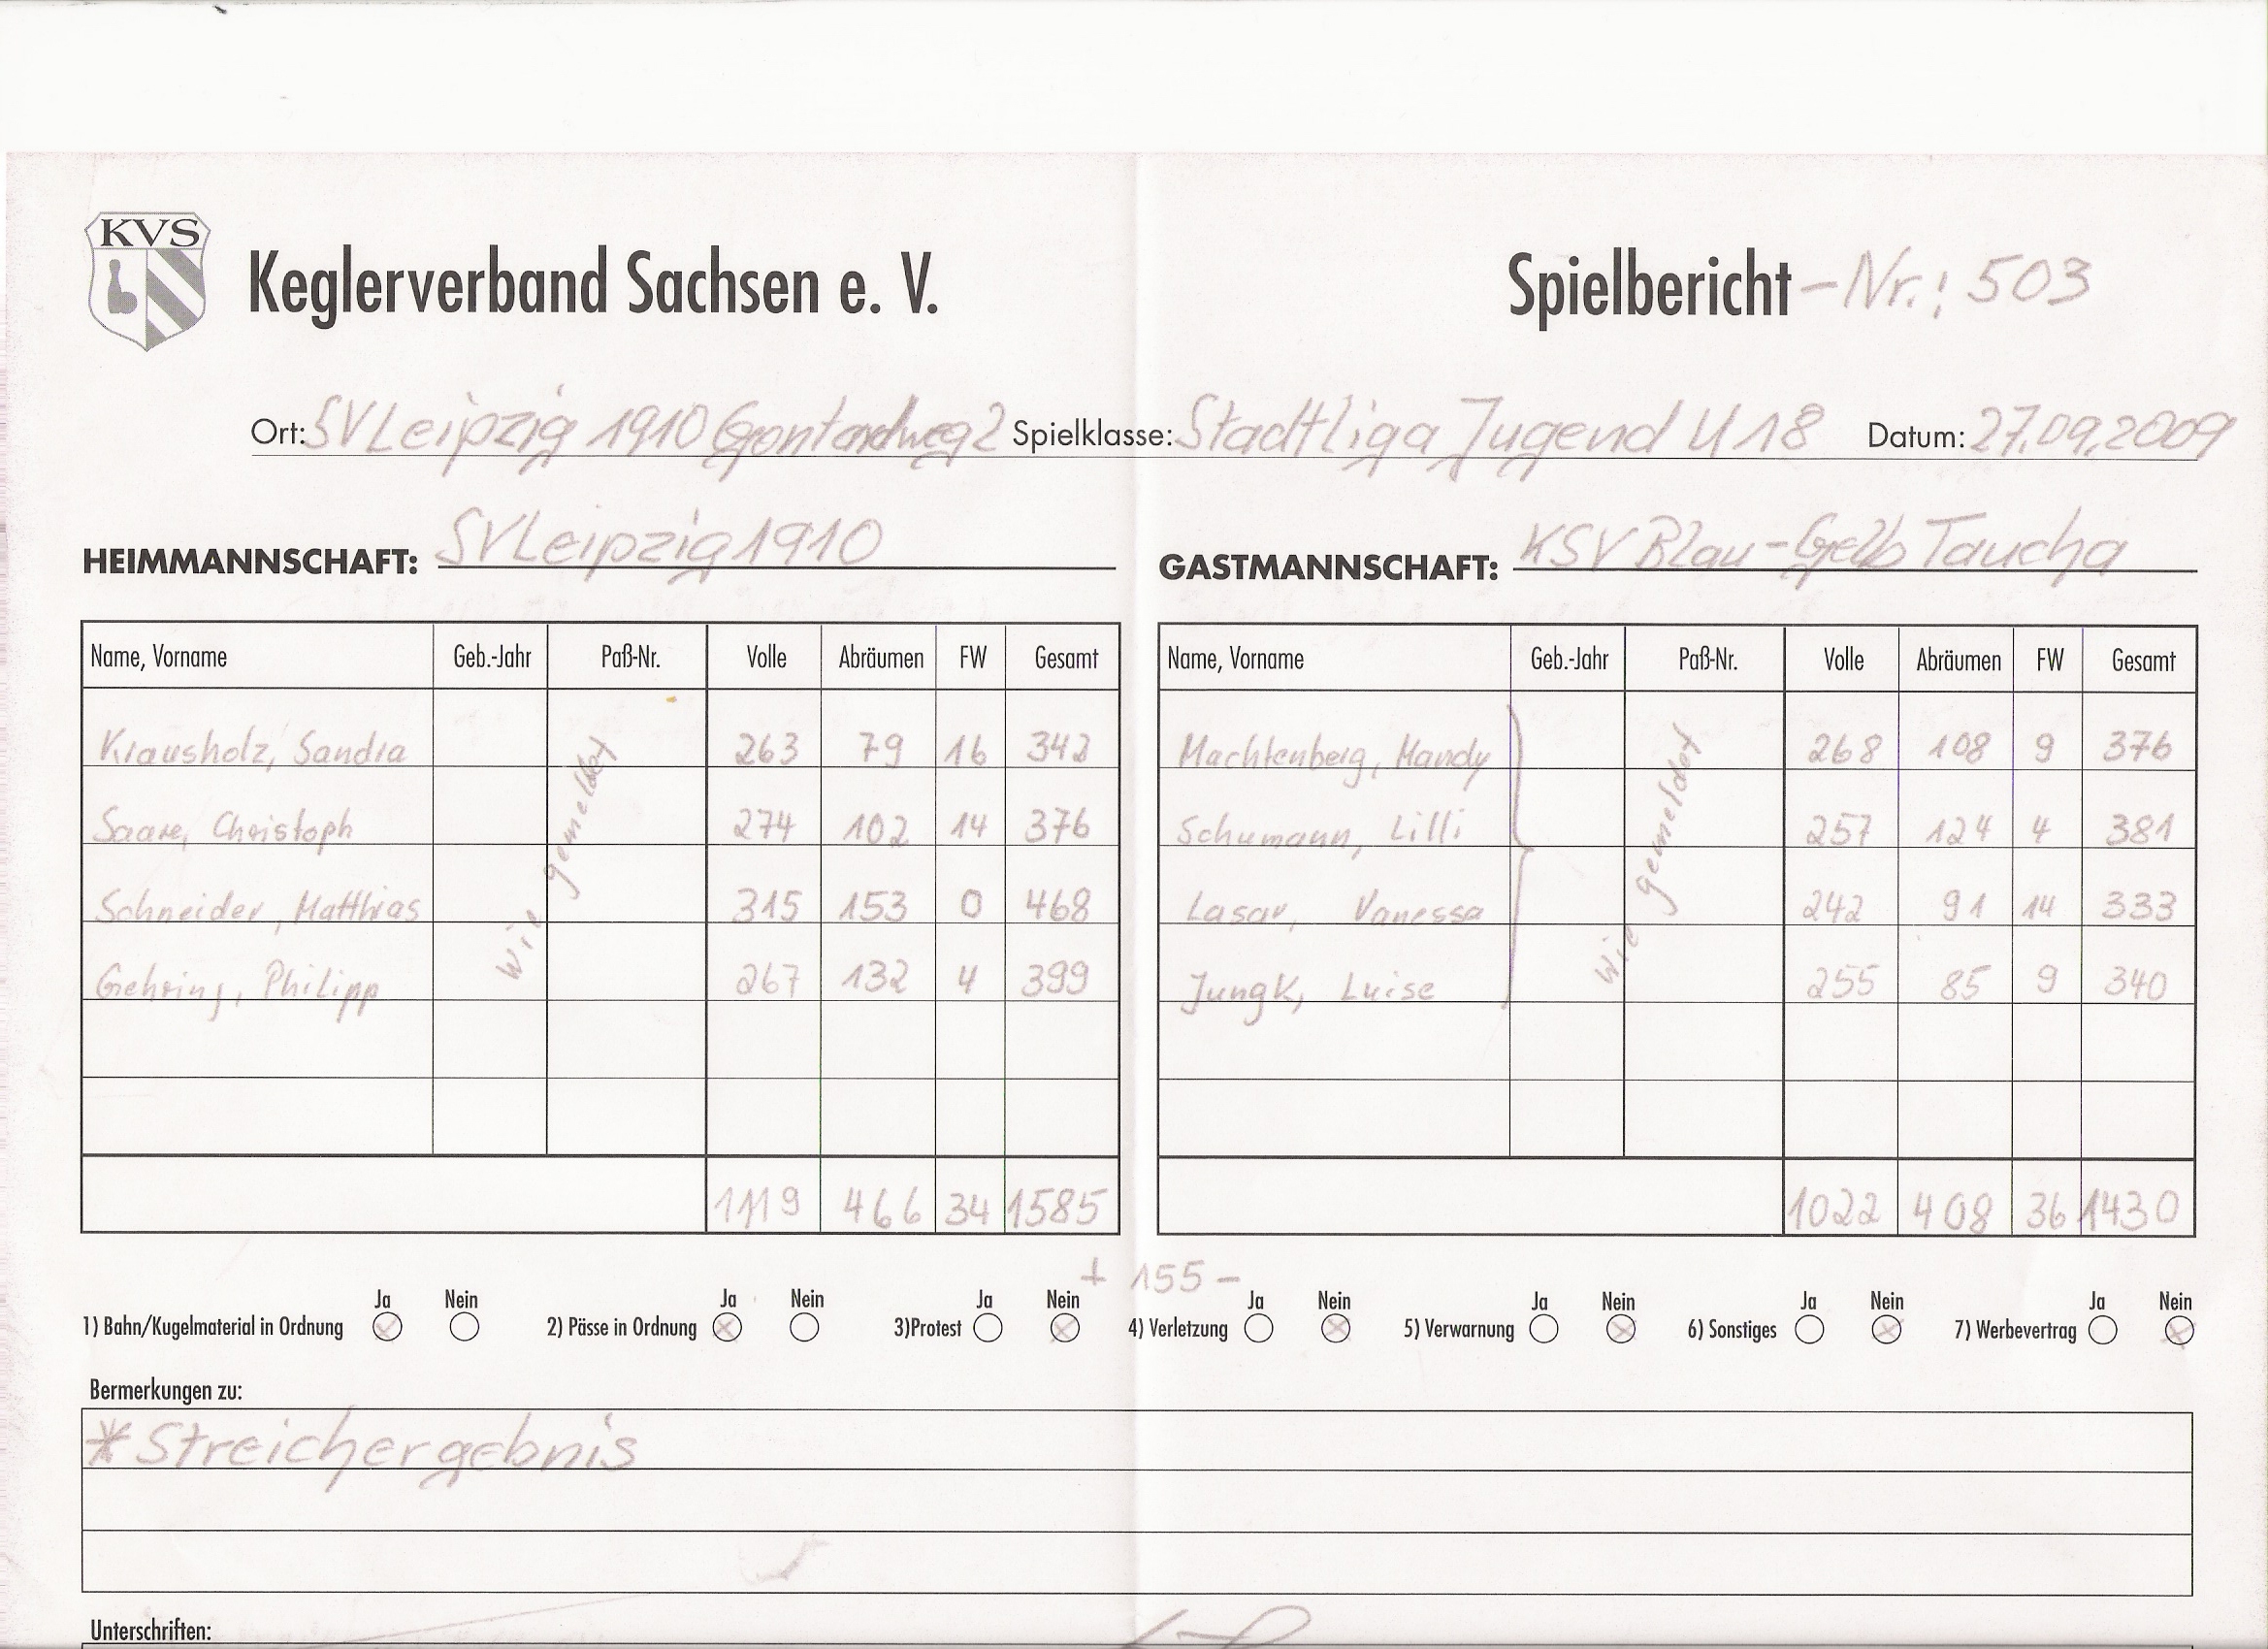 KVS
Keglerverband Sachsen e. V.
Spielbericht -Nr.: 503
Ort: SV Leipzig 1910 Gontardweg 2 Spielklasse: Stadtliga Jugend U18 Datum: 27.09.2009
HEIMMANNSCHAFT: SV Leipzig 1910 GASTMANNSCHAFT: KSV Blau-Gelb Taucha
Name, Vorname Geb.-Jahr Paß-Nr. Volle Abräumen FW Gesamt
Krausholz, Sandra 263 79 16 342
Saare, Christoph 274 102 14 376
Schneider, Matthias 315 153 0 468
Gehring, Philipp 267 132 4 399
wie gemeldet
1119 466 34 1585
Name, Vorname Geb.-Jahr Paß-Nr. Volle Abräumen FW Gesamt
Machtenberg, Mandy 268 108 9 376
Schumann, Lilli 257 124 4 381
Lasar, Vanessa 242 91 14 333
Jungk, Luise 255 85 9 340
wie gemeldet
1022 408 36 1430
+ 155 -
Ja Nein Ja Nein Ja Nein Ja Nein Ja Nein Ja Nein Ja Nein
1) Bahn/Kugelmaterial in Ordnung 2) Pässe in Ordnung 3)Protest 4) Verletzung 5) Verwarnung 6) Sonstiges 7) Werbevertrag
Bermerkungen zu:
*Streichergebnis
Unterschriften: